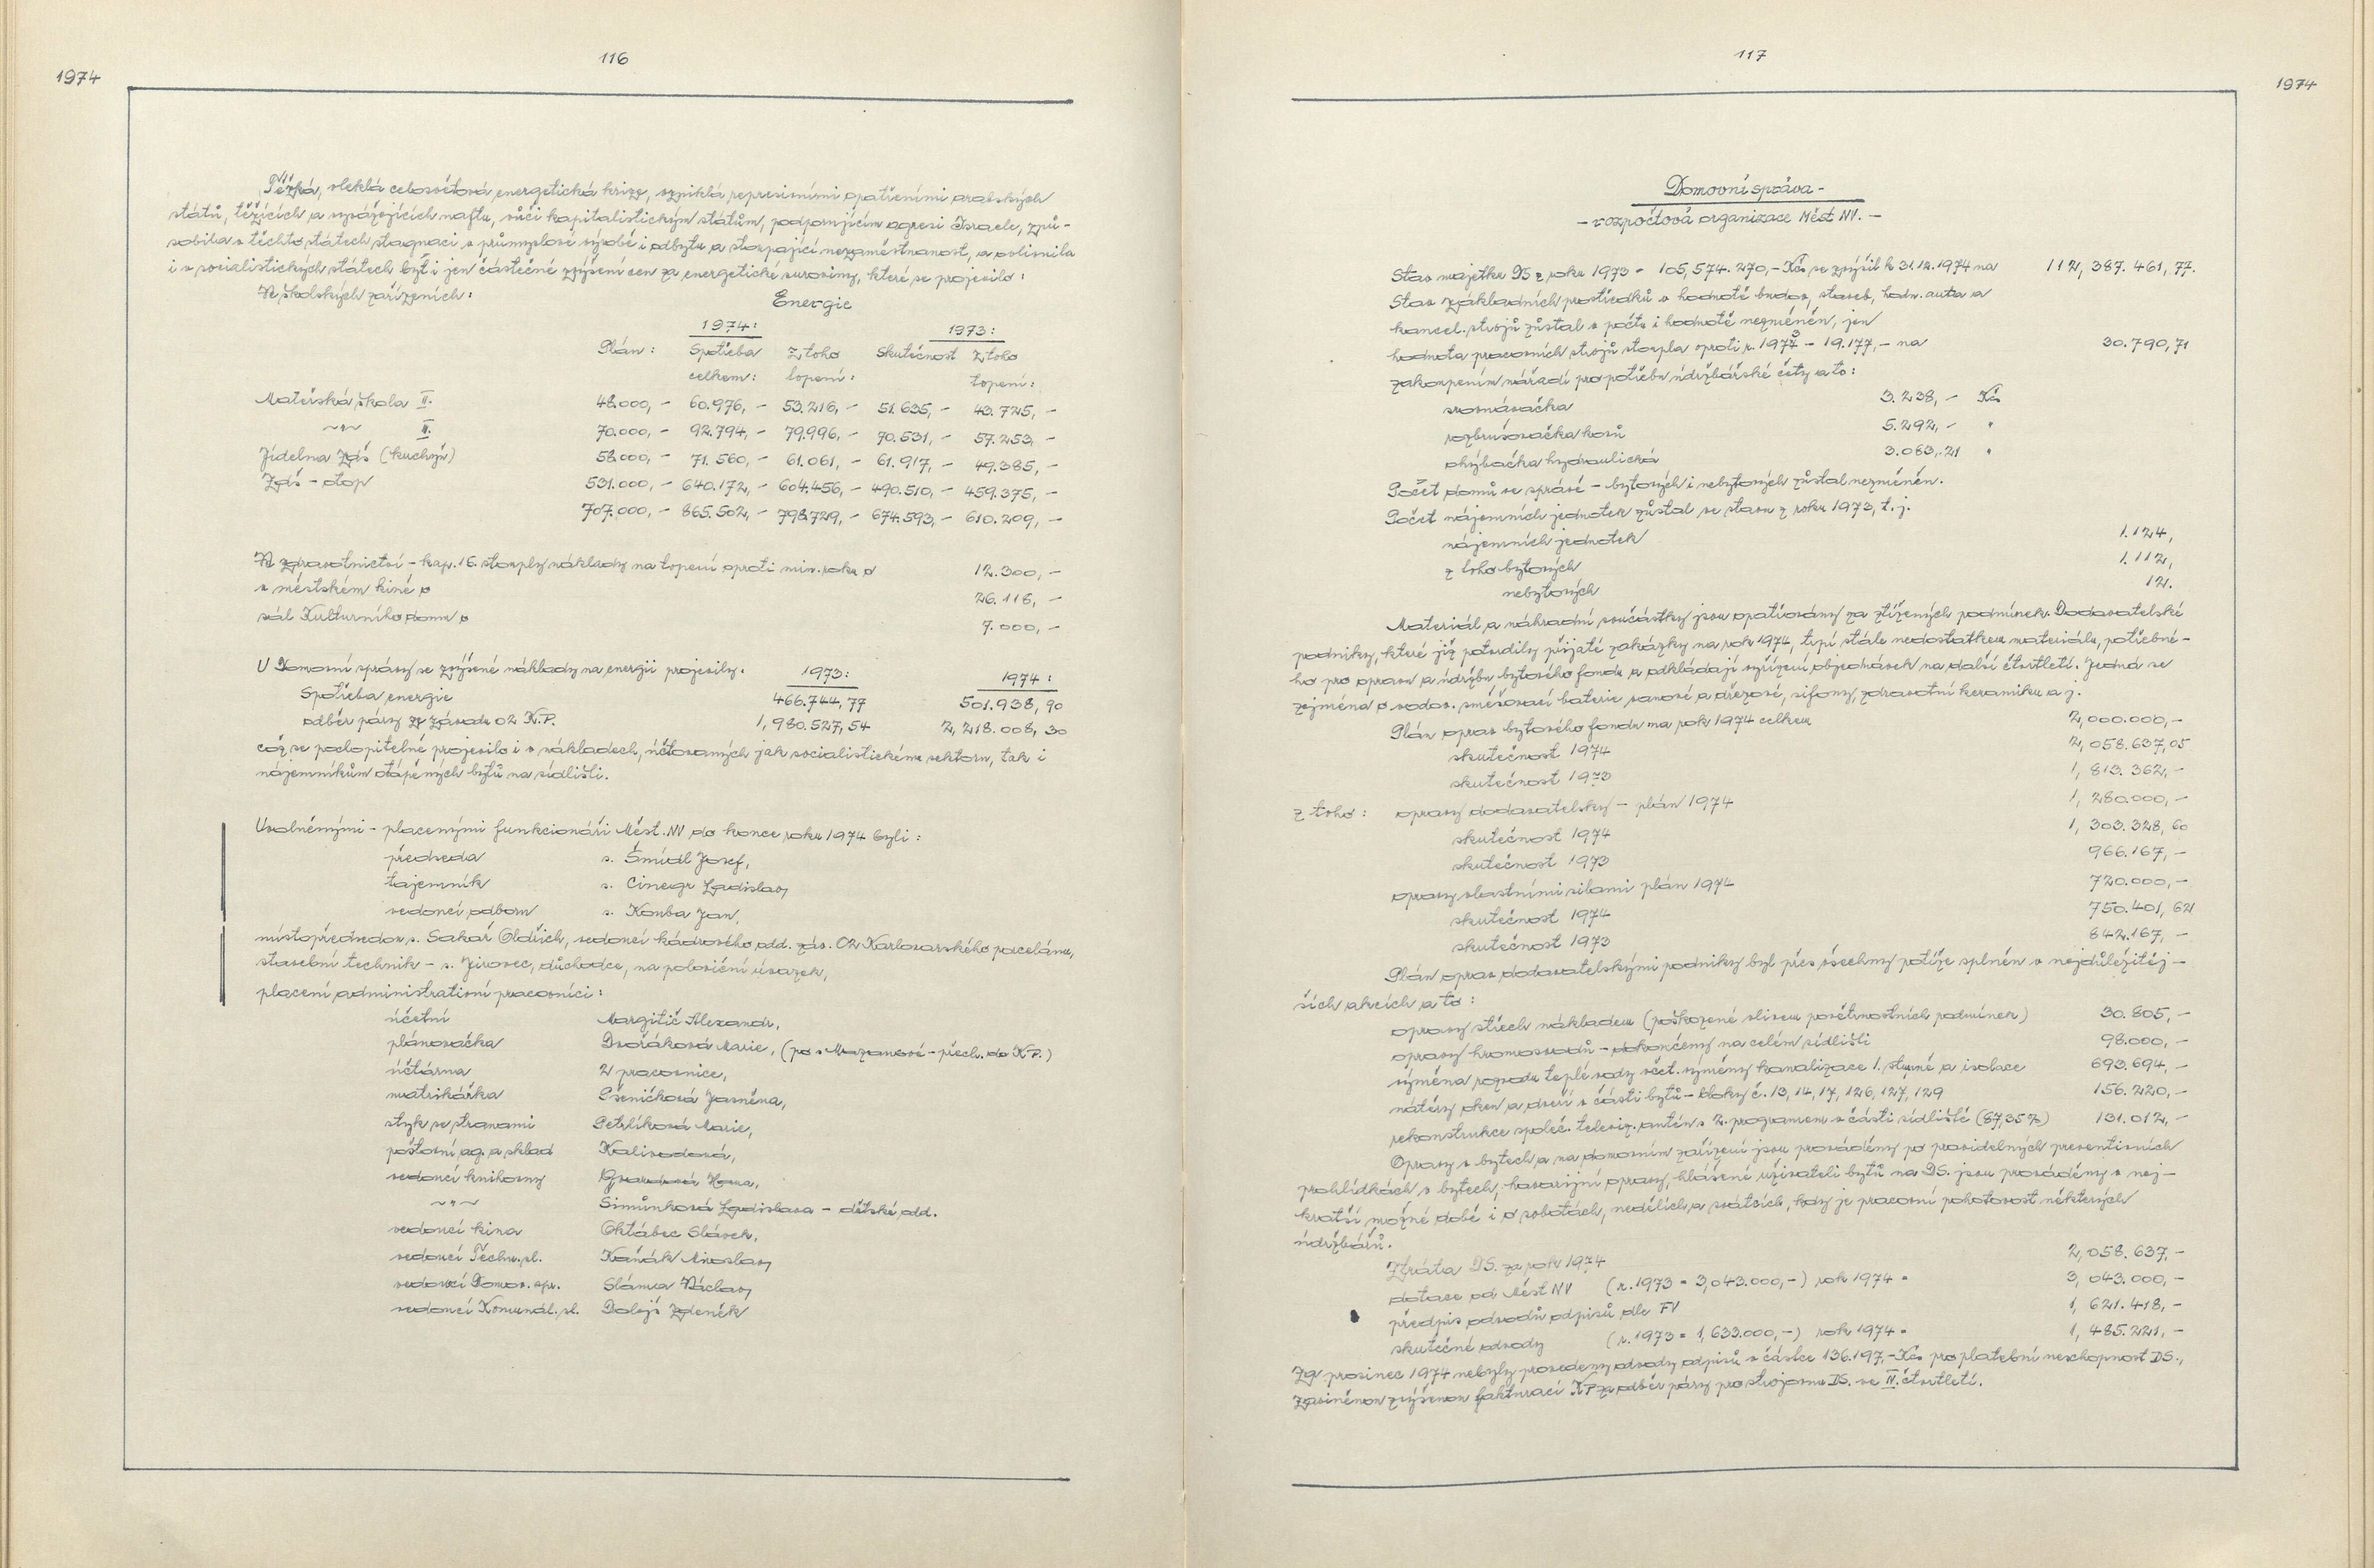 116
1974
Těžká, vleklá celosvětová energetická krize, vzniklá represivními opatřeními arabských
států, těžících a vyvážejících naftu, vůči kapitalistickým státům, podporujícím agresi Israele, způ-
sobila v těchto státech stagnaci v průmyslové výrobě i odbytu a stoupající nezaměstnanost, a ovlivnila
i v socialistických státech byť i jen částečné zvýšení cen za energetické suroviny, které se projevilo:
Ve školských zařízeních:
Energie
1974: 1973:
Plán: Spotřeba Z toho Skutečnost Z toho
celkem: topení: topení:
Mateřská škola II. 48.000,- 60.976,- 53.216,- 51.635,- 43.725,-
~"~ II. 70.000,- 92.794,- 79.996,- 70.531,- 57.253,-
Jídelna Zdš (kuchyř) 58.000,- 71.560,- 61.061,- 61.917,- 49.385,-
Zdš - otop 531.000,- 640.172,- 604.456,- 490.510,- 459.375,-
707.000,- 865.502,- 798.729,- 674.593,- 610.209,-
Ve zdravotnictví - kap. 15. stouply náklady na topení oproti min. roku o 12.300,-
v městském kině o 26.118,-
sál Kulturního domu o 7.000,-
U Domovní správy se zvýšené náklady na energii projevily. 1973: 1974:
Spotřeba energie 466.744,77 501.938,90
odběr páry ze závodu 02 K.P. 1,980.527,54 2,218.008,30
což se pochopitelně projevilo i v nákladech, účtovaných jak socialistickému sektoru, tak i
nájemníkům otápěných bytů na sídlišti.
Uvolněnými - placenými funkcionáři Měst. NV do konce roku 1974 byli:
předseda s. Šmídl Josef,
tajemník s. Cinegr Ladislav,
vedoucí odboru s. Kouba Jan,
místopředsedou s. Sakař Oldřich, vedoucí kádrového odd. záv. 02 Karlovarského porcelánu,
stavební technik - s. Jirovec, důchodce, na poloviční úvazek,
placení administrativní pracovníci:
účetní Margitič Alexandr,
plánovačka Dvořáková Marie, (po s. Mazancové - přech. do K.P.)
účtárna 2 pracovnice,
matrikářka Pšeničková Jasněna,
styk se stranami Petrlíková Marie,
poštovní ag. a sklad Kalivodová,
vedoucí knihovny Hana,
~"~ Šimůnková Ladislava - dětské odd.
vedoucí kina Oktábec Slávek,
vedoucí Techn. sl. Kaňák Miroslav,
vedoucí Domov. spr. Sláma Václav,
vedoucí Komunál. sl. Dolejš Zdeněk
117
1974
Domovní správa -
- rozpočtová organizace Měst NV. -
Stav majetku DS z roku 1973 - 105,574.270,- Kčs se zvýšil k 31.12.1974 na 112,387.461,77.
Stav základních prostředků v hodnotě budov, staveb, hodn. auta a
kancel. strojů zůstal v počtu i hodnotě nezměněn, jen
hodnota pracovních strojů stoupla oproti r. 1973 - 19.177,- na 30.790,71
zakoupením nářadí pro potřebu údržbářské čety a to:
srovnávačka 3.238,- Kčs
rozbrušovačka kovů 5.292,- "
ohýbačka hydraulická 3.083,21 "
Počet domů ve správě - bytových i nebytových zůstal nezměněn.
Počet nájemních jednotek zůstal ve stavu z roku 1973, t.j.
nájemních jednotek 1.124,
z toho bytových 1.112,
nebytových 12.
Materiál a náhradní součástky jsou opatřovány za ztížených podmínek. Dodavatelské
podniky, které již potvrdily přijaté zakázky na rok 1974, trpí stále nedostatkem materiálu, potřebné-
ho pro opravu a údržbu bytového fondu a odkládají vyřízení objednávek na další čtvrtletí. Jedná se
zejména o vodov. směšovací baterie vanové a dřezové, sifony, zdravotní keramiku a j.
Plán oprav bytového fondu na rok 1974 celkem 2,000.000,-
skutečnost 1974 2,058.637,05
skutečnost 1973 1,813.362,-
z toho: opravy dodavatelsky - plán 1974 1,280.000,-
skutečnost 1974 1,303.328,60
skutečnost 1973 966.167,-
opravy vlastními silami plán 1974 720.000,-
skutečnost 1974 750.401,621
skutečnost 1973 842.167,-
Plán oprav dodavatelskými podniky byl přes všechny potíže splněn v nejdůležitěj-
ších akcích a to:
opravy střech nákladem (poškozené vlivem povětrnostních podmínek) 30.805,-
opravy hromosvodů - dokončeny na celém sídlišti 98.000,-
výměna rozvodu teplé vody včet. výměny kanalizace 1. stupně a isolace 693.694,-
nátěry oken a dveří v části bytů - bloky č. 13, 14, 17, 126, 127, 129 156.220,-
rekonstrukce společ. televiz. antén s 2. programem v části sídliště (87,35%) 131.012,-
Opravy v bytech a na domovním zařízení jsou prováděny po pravidelných preventivních
prohlídkách v bytech, havarijní opravy, hlášené uživateli bytů na DS. jsou prováděny v nej-
kratší možné době i o sobotách, nedělích a svátcích, kdy je pracovní pohotovost některých
údržbářů.
Ztráta DS. za rok 1974 2,058.637,-
dotace od Měst NV (r. 1973 = 3,043.000,-) rok 1974 = 3,043.000,-
předpis odvodů odpisů dle FV 1,621.418,-
skutečné odvody (r. 1973 = 1,633.000,-) rok 1974 = 1,485.221,-
Za prosinec 1974 nebyly provedeny odvody odpisů v částce 136.197,- Kčs pro platební neschopnost DS.,
zaviněnou zvýšenou fakturací KP za odběr páry pro strojovnu DS. ve IV. čtvrtletí.